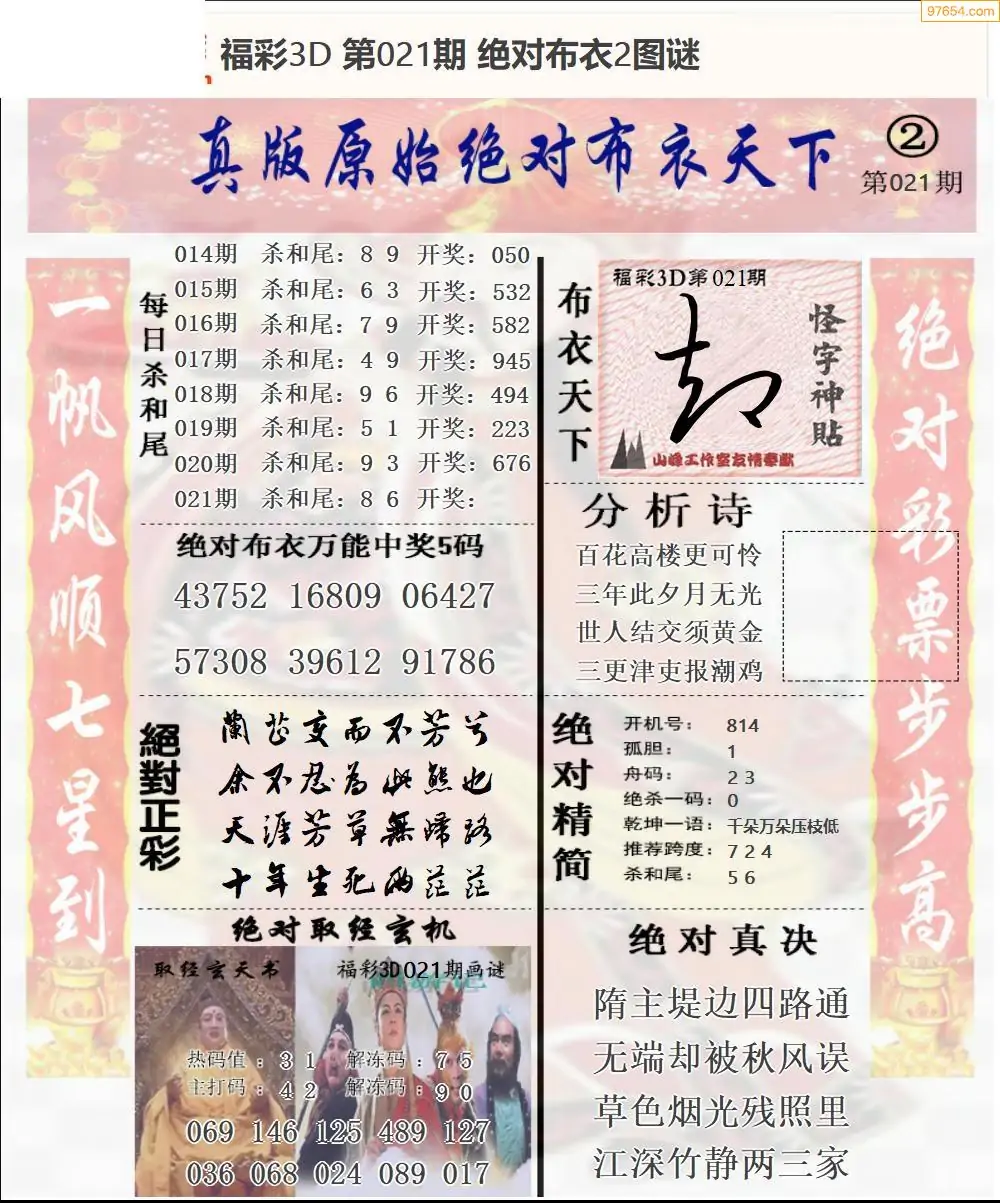 97654.com
福彩3D 第021期 绝对布衣2图谜
真版原始绝对布衣天下
②
第021期
一帆风顺七星到
每日杀和尾
014期 杀和尾：8 9 开奖：050
015期 杀和尾：6 3 开奖：532
016期 杀和尾：7 9 开奖：582
017期 杀和尾：4 9 开奖：945
018期 杀和尾：9 6 开奖：494
019期 杀和尾：5 1 开奖：223
020期 杀和尾：9 3 开奖：676
021期 杀和尾：8 6 开奖：
绝对布衣万能中奖5码
43752 16809 06427
57308 39612 91786
絕對正彩
蘭芷变而不芳兮
余不忍為此態也
天涯芳草無歸路
十年生死两茫茫
绝对取经玄机
取经玄天书
福彩3D021期画谜
热码值：31 解冻码：75
主打码：42 解冻码：90
069 146 125 489 127
036 068 024 089 017
布衣天下
福彩3D第021期
怪字神貼
山峰工作室友情奉献
分析诗
百花高楼更可怜
三年此夕月无光
世人结交须黄金
三更津吏报潮鸡
绝对精简
开机号：814
孤胆：1
舟码：23
绝杀一码：0
乾坤一语：千朵万朵压枝低
推荐跨度：724
杀和尾：56
绝对真决
隋主堤边四路通
无端却被秋风误
草色烟光残照里
江深竹静两三家
绝对彩票步步高